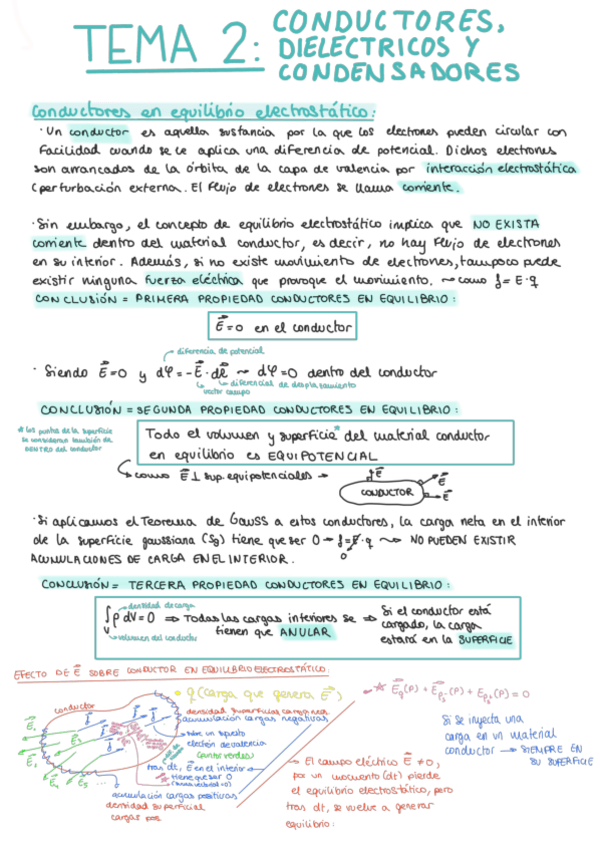 TEMA 2: CONDUCTORES,
DIELECTRICOS Y
CONDENSADORES
Conductores en equilibrio electrostático:
· Un conductor es aquella sustancia por la que los electrones pueden circular con
facilidad cuando se le aplica una diferencia de potencial. Dichos electrones
son arrancados de la órbita de la capa de valencia por interacción electrostática
(perturbación externa. El flujo de electrones se llama corriente.
· Sin embargo, el concepto de equilibrio electrostático implica que NO EXISTA
corriente dentro del material conductor, es decir, no hay flujo de electrones
en su interior. Además, si no existe movimiento de electrones, tampoco puede
existir ninguna fuerza eléctrica que provoque el movimiento. ~ como f = E·q
CONCLUSIÓN = PRIMERA PROPIEDAD CONDUCTORES EN EQUILIBRIO:
E⃗=0 en el conductor
diferencia de potencial
· Siendo E⃗=0 y dφ = -E⃗·dℓ⃗ ~ dφ=0 dentro del conductor
diferencial de desplazamiento
vector campo
CONCLUSIÓN = SEGUNDA PROPIEDAD CONDUCTORES EN EQUILIBRIO:
* los puntos de la superficie
se consideran también de
DENTRO del conductor
Todo el volumen y superficie* del material conductor
en equilibrio es EQUIPOTENCIAL
como E⃗ ⊥ sup. equipotenciales →
E⃗
E⃗
CONDUCTOR
E⃗
· Si aplicamos el Teorema de Gauss a estos conductores, la carga neta en el interior
de la superficie gaussiana (Sg) tiene que ser 0 → f=E⃗·q ~ NO PUEDEN EXISTIR
0
ACUMULACIONES DE CARGA EN EL INTERIOR.
CONCLUSIÓN = TERCERA PROPIEDAD CONDUCTORES EN EQUILIBRIO:
densidad de carga
∫ρ dV=0 ⇒ Todas las cargas interiores se ⇒ Si el conductor está
V
tienen que ANULAR
cargado, la carga
estará en la SUPERFICIE
volumen del conductor
EFECTO DE E⃗ SOBRE CONDUCTOR EN EQUILIBRIO ELECTROSTÁTICO:
q (carga que genera E⃗)
* E⃗q(P) + E⃗
(P) + E⃗
(P) = 0
conductor
densidad superficial carga neg
acumulación cargas negativas
electrón de valencia
(puntos verdes)
tras dt, E⃗ en el interior
tiene que ser 0
acumulación cargas positivas
densidad superficial
cargas pos
→ El campo eléctrico E⃗ ≠ 0,
por un momento (dt) pierde
el equilibrio electrostático, pero
tras dt, se vuelve a generar
equilibrio:
Si se inyecta una
carga en un material
conductor → SIEMPRE EN
SU SUPERFICIE